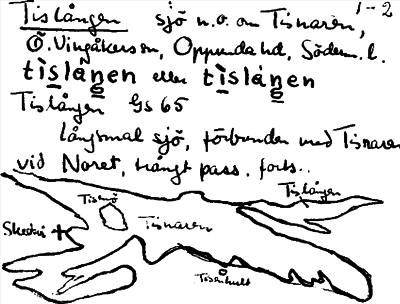 Tislången sjö n.o. om Tisnaren, 1-2
Ö. Vingåkers sn, Oppunda hd, Söderm. l.
tìslàŋen eller tìslåŋen
Tislången GS 65
långsmal sjö, förbunden med Tisnaren
vid Noret, trångt pass, forts..
Tislången
Tisnö
Skedvi
Tisnaren
Tisenhult